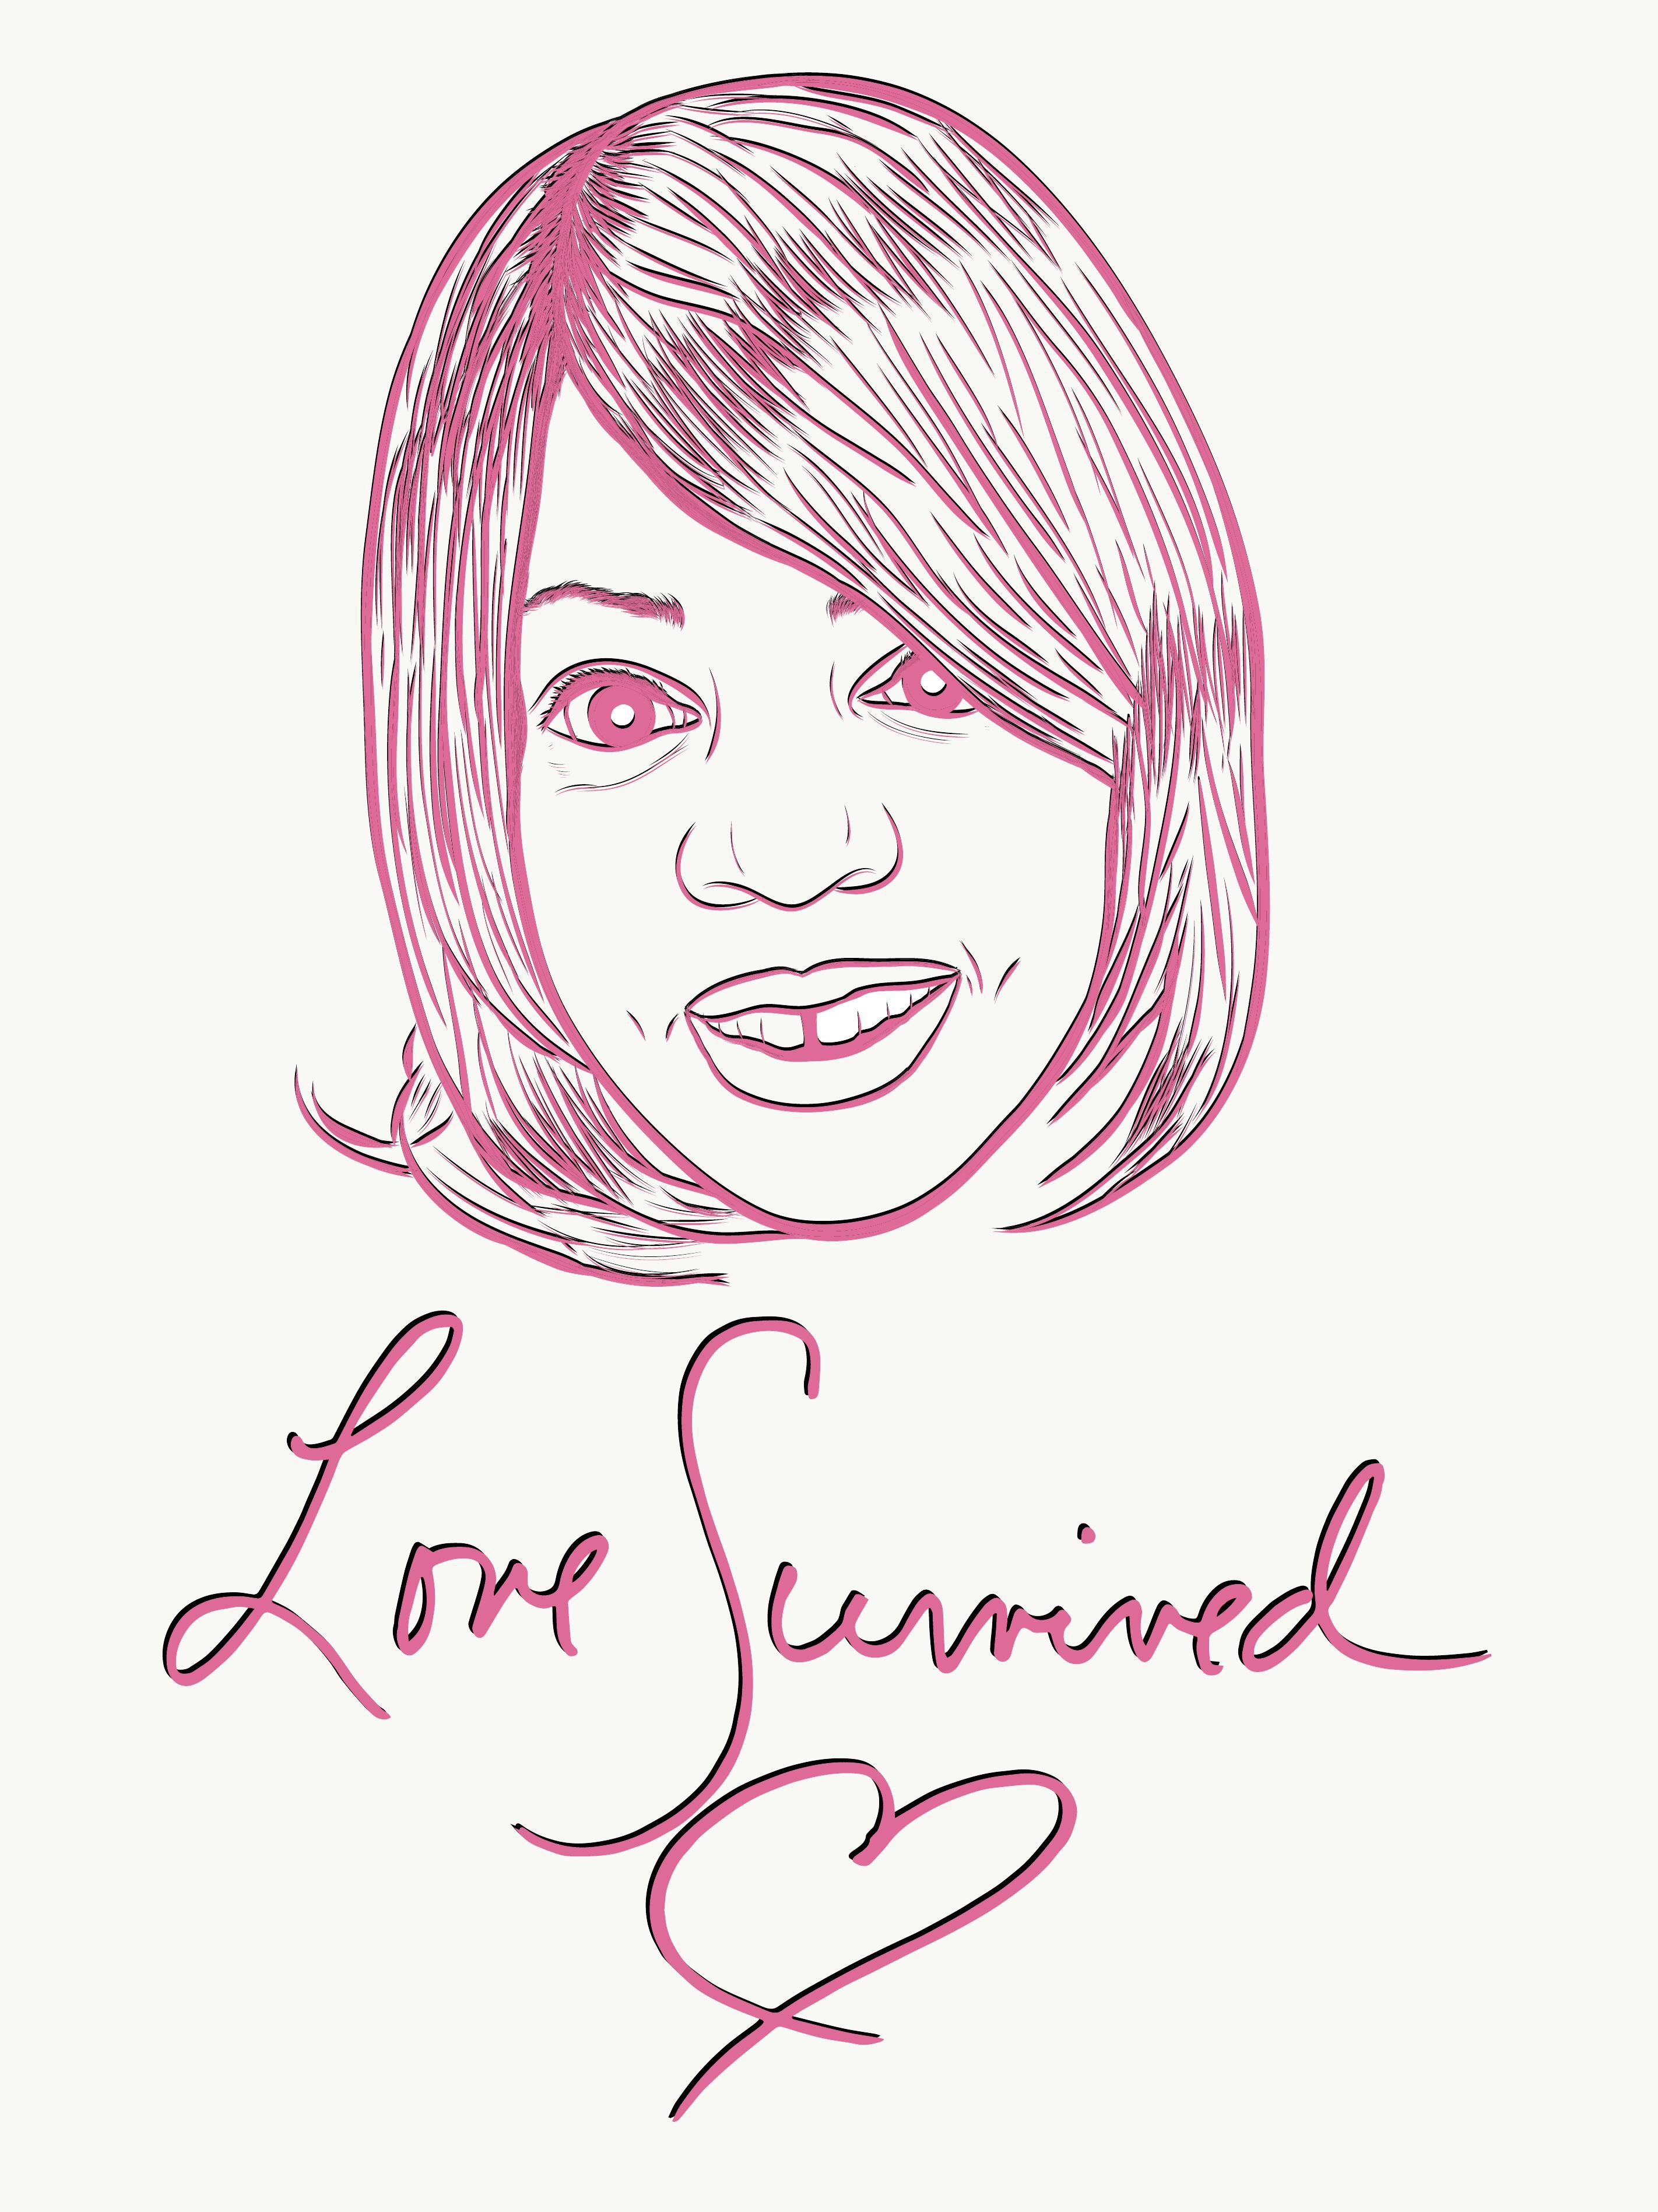 Love Survived